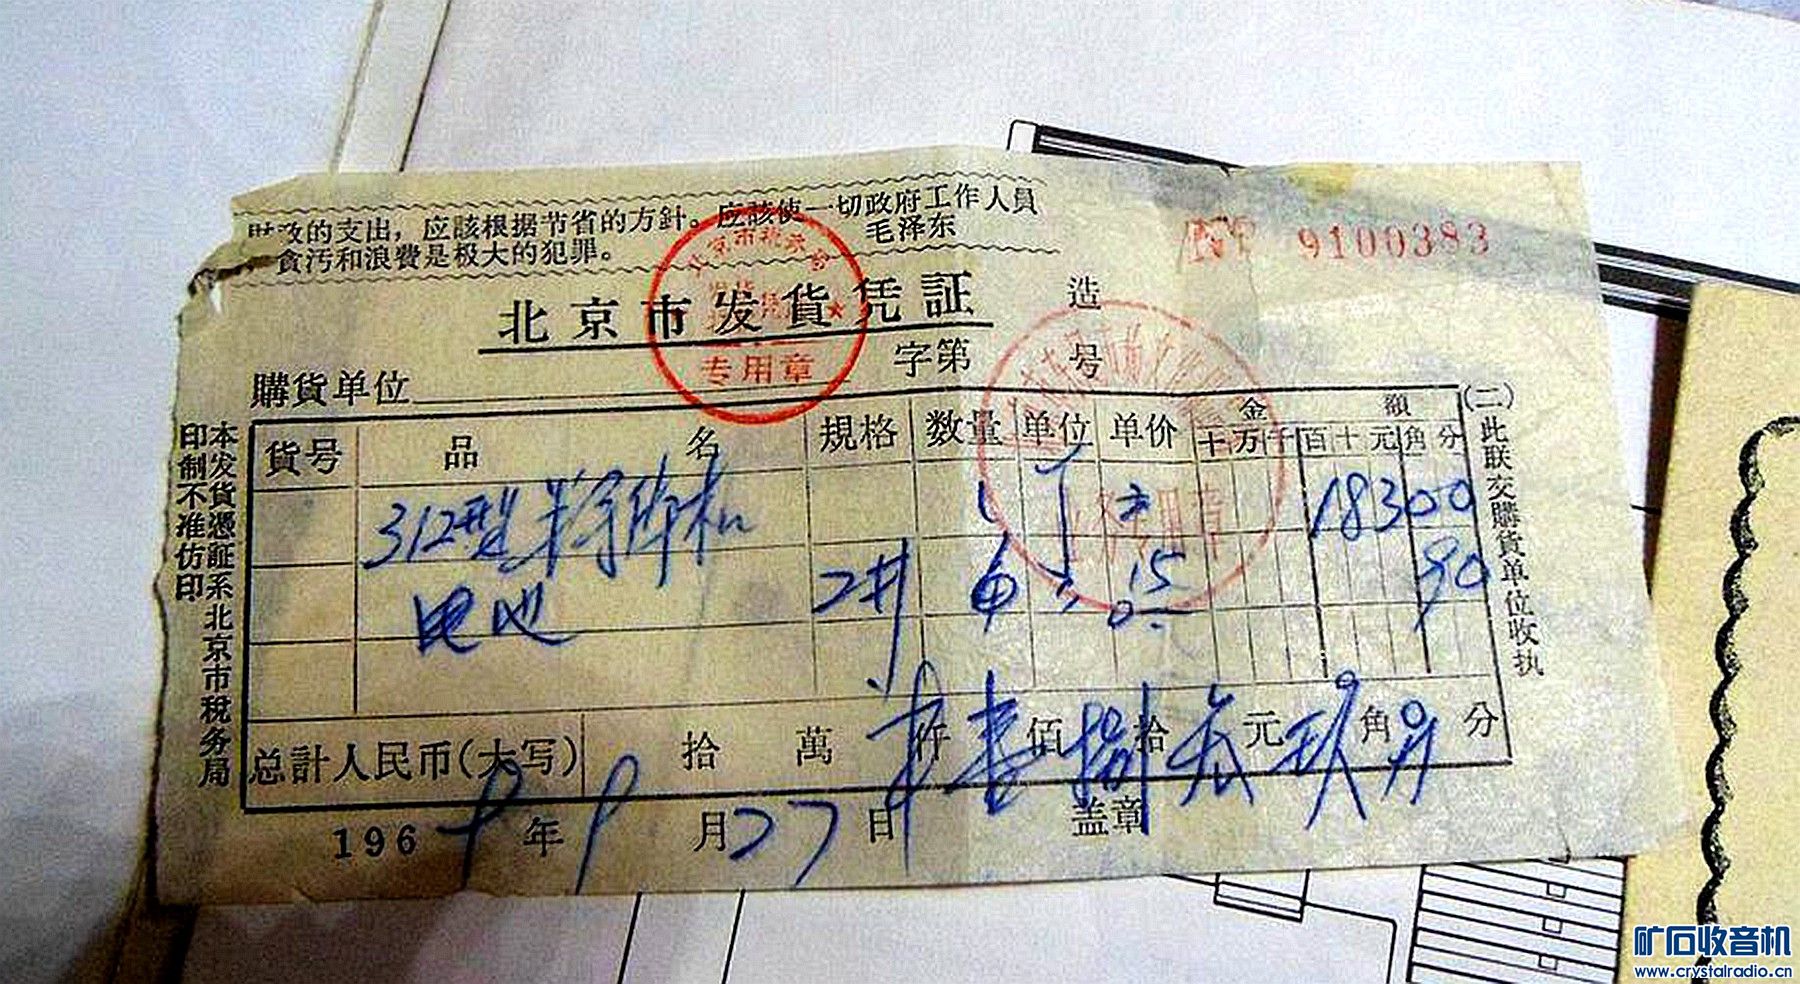 财政的支出，应該根据节省的方針。应該使一切政府工作人員
貪污和浪費是极大的犯罪。 毛泽东
No 9100383
北京市发貨凭証
专用章
造
字第 号
購貨单位
貨号 品名 規格 数量 单位 单价 金額
十万千百十元角分
312型半导体机 1 18300
电池 2井 6 15 90
总計人民币(大写) 拾 萬 仟 壹佰捌拾 元玖角 分
196 年9月27日 盖章
本发貨凭証系北京市税务局
印制不准仿印
(二)此联交購貨单位收执
矿石收音机
www.crystalradio.cn